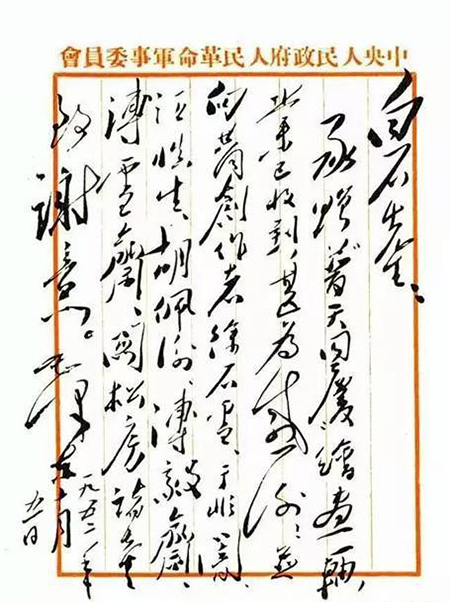 中央人民政府人民革命軍事委員會
白石先生、
承贈普天同慶、繪畫一軸、
業已收到、甚为感谢、並
向共同創作者徐石雪、于非闇、
汪慎生、胡佩衡、溥毅齋、
溥雪齋、關松房諸先生
致謝意。毛澤東
一九五二年
十月
五日